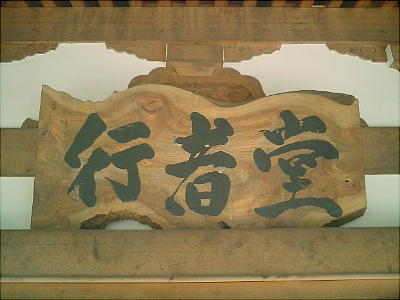 行者堂